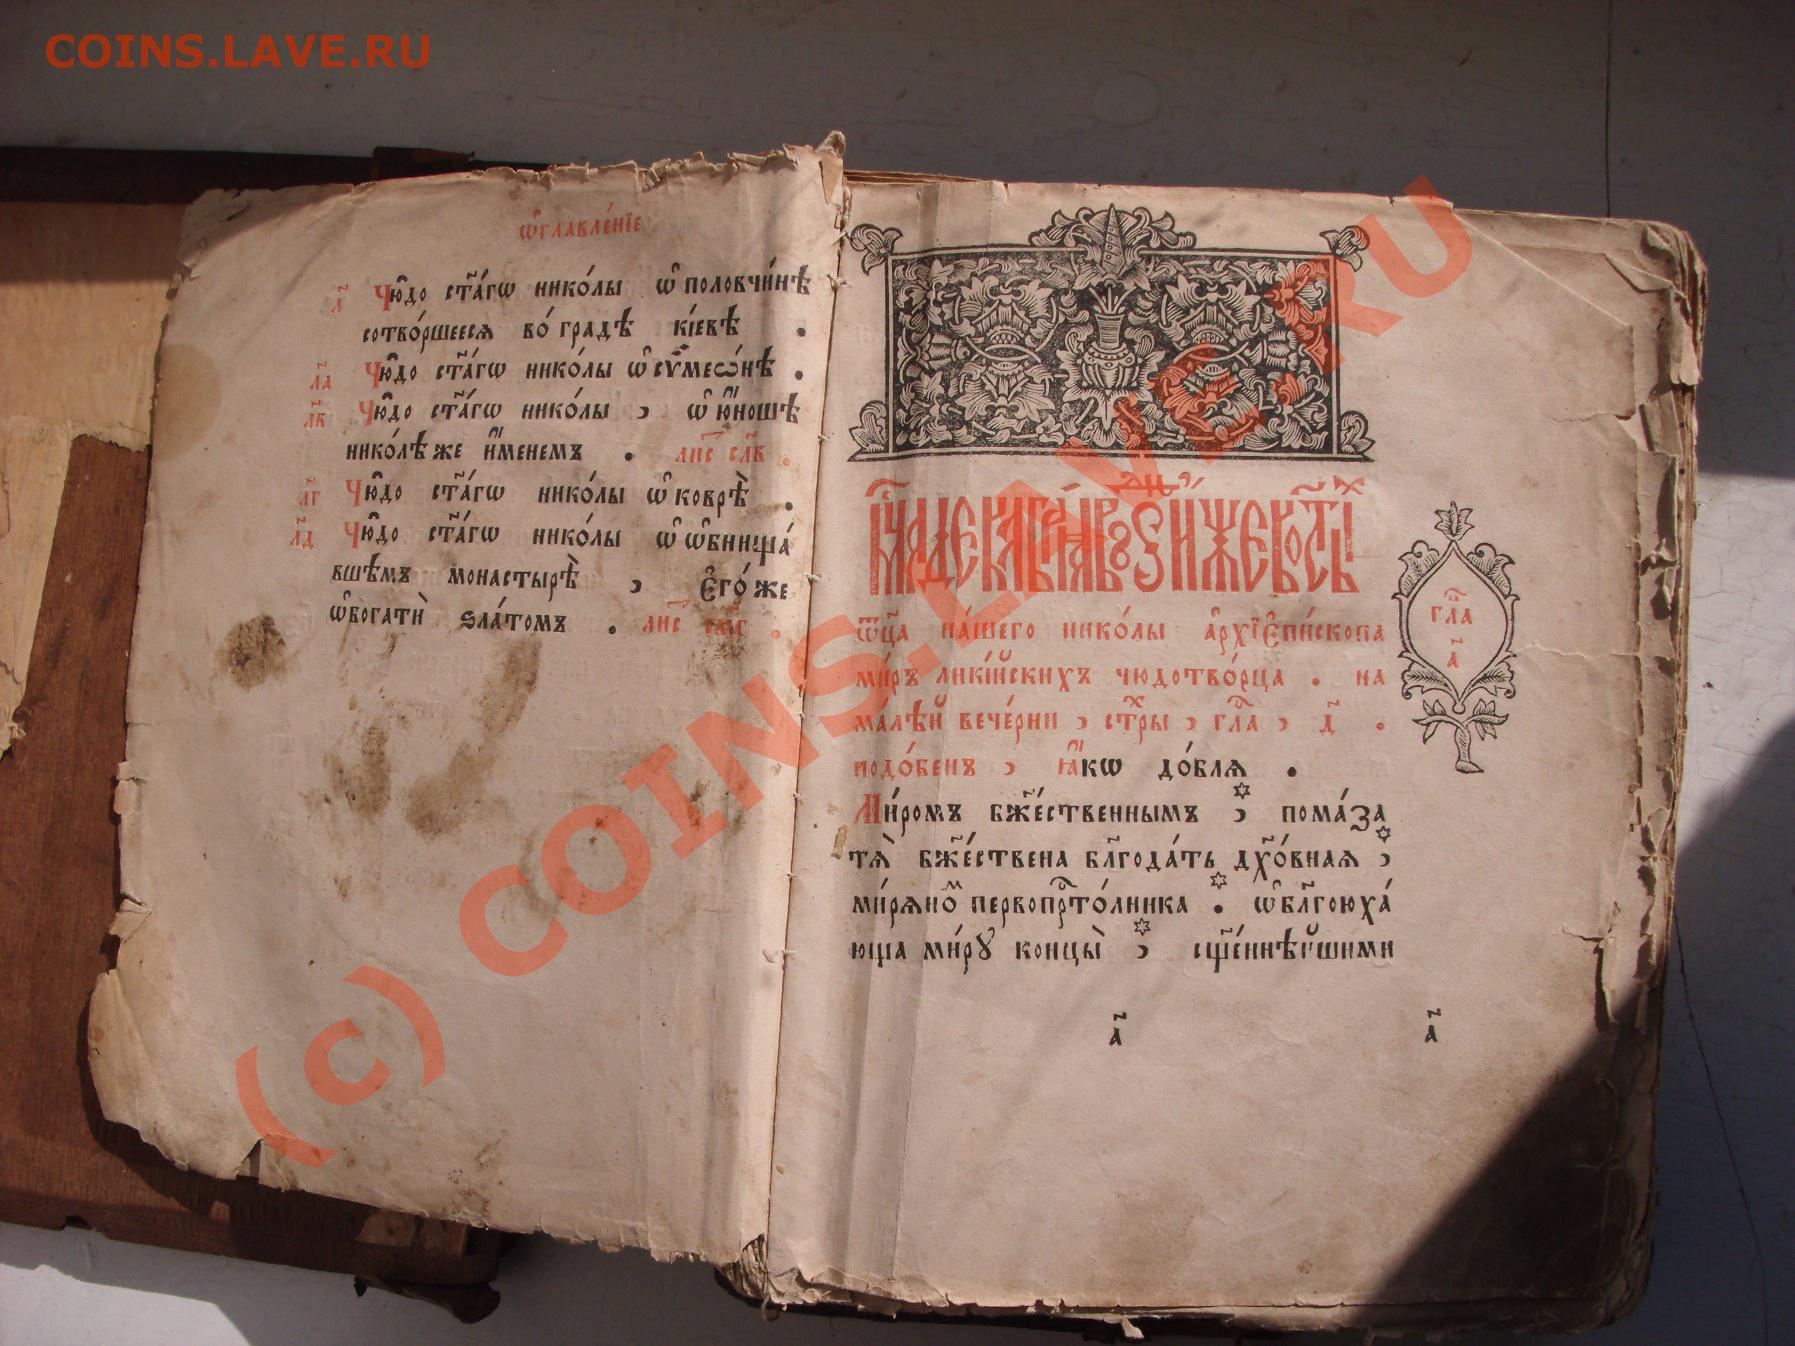 COINS.LAVE.RU
ѡ҆главле́нїе
л҃ Чю̑до ст҃а́гѡ нико́лы ѡ҆ половчи́нѣ
сотво́ршееся во́ градѣ кі́евѣ .
л҃а Чю̑до ст҃а́гѡ нико́лы ѡ҆ сѵмеѡ́нѣ .
л҃в Чю̑до ст҃а́гѡ нико́лы , ѡ҆ ю҆́ношѣ
нико́лѣ же и҆́менемъ . лис сл҃в .
л҃г Чю̑до ст҃а́гѡ нико́лы ѡ҆ коврѣ̀ .
л҃д Чю̑до ст҃а́гѡ нико́лы ѡ҆ ѡ҆бнища́
вшемъ монастырѣ̀ , є҆го́ же
ѡ҆богатѝ ѕла́томъ . лис
ѡ҆ц҃а на́шего нико́лы а҆рхїє҆пи́скопа
ми́ръ ликі́йскихъ чюдотво́рца . на
ма́лѣй вече́рни , стⷯры , гла , д҃ .
подо́бенъ , ꙗ҆́кѡ до́блѧ .
гла
а҃
Ми́ромъ бж҃е́ственнымъ , пома́за
тѧ̀ бж҃е́ствена бл҃года́ть дх҃о́внаѧ ,
ми́рѧноⷨ первопрⷭ҇то́лника . ѡ҆бл҃гоюха́
юща ми́рꙋ концы̀ , сщ҃е́ннѣйшими
а҃ а҃
(c) COINS.LAVE.RU